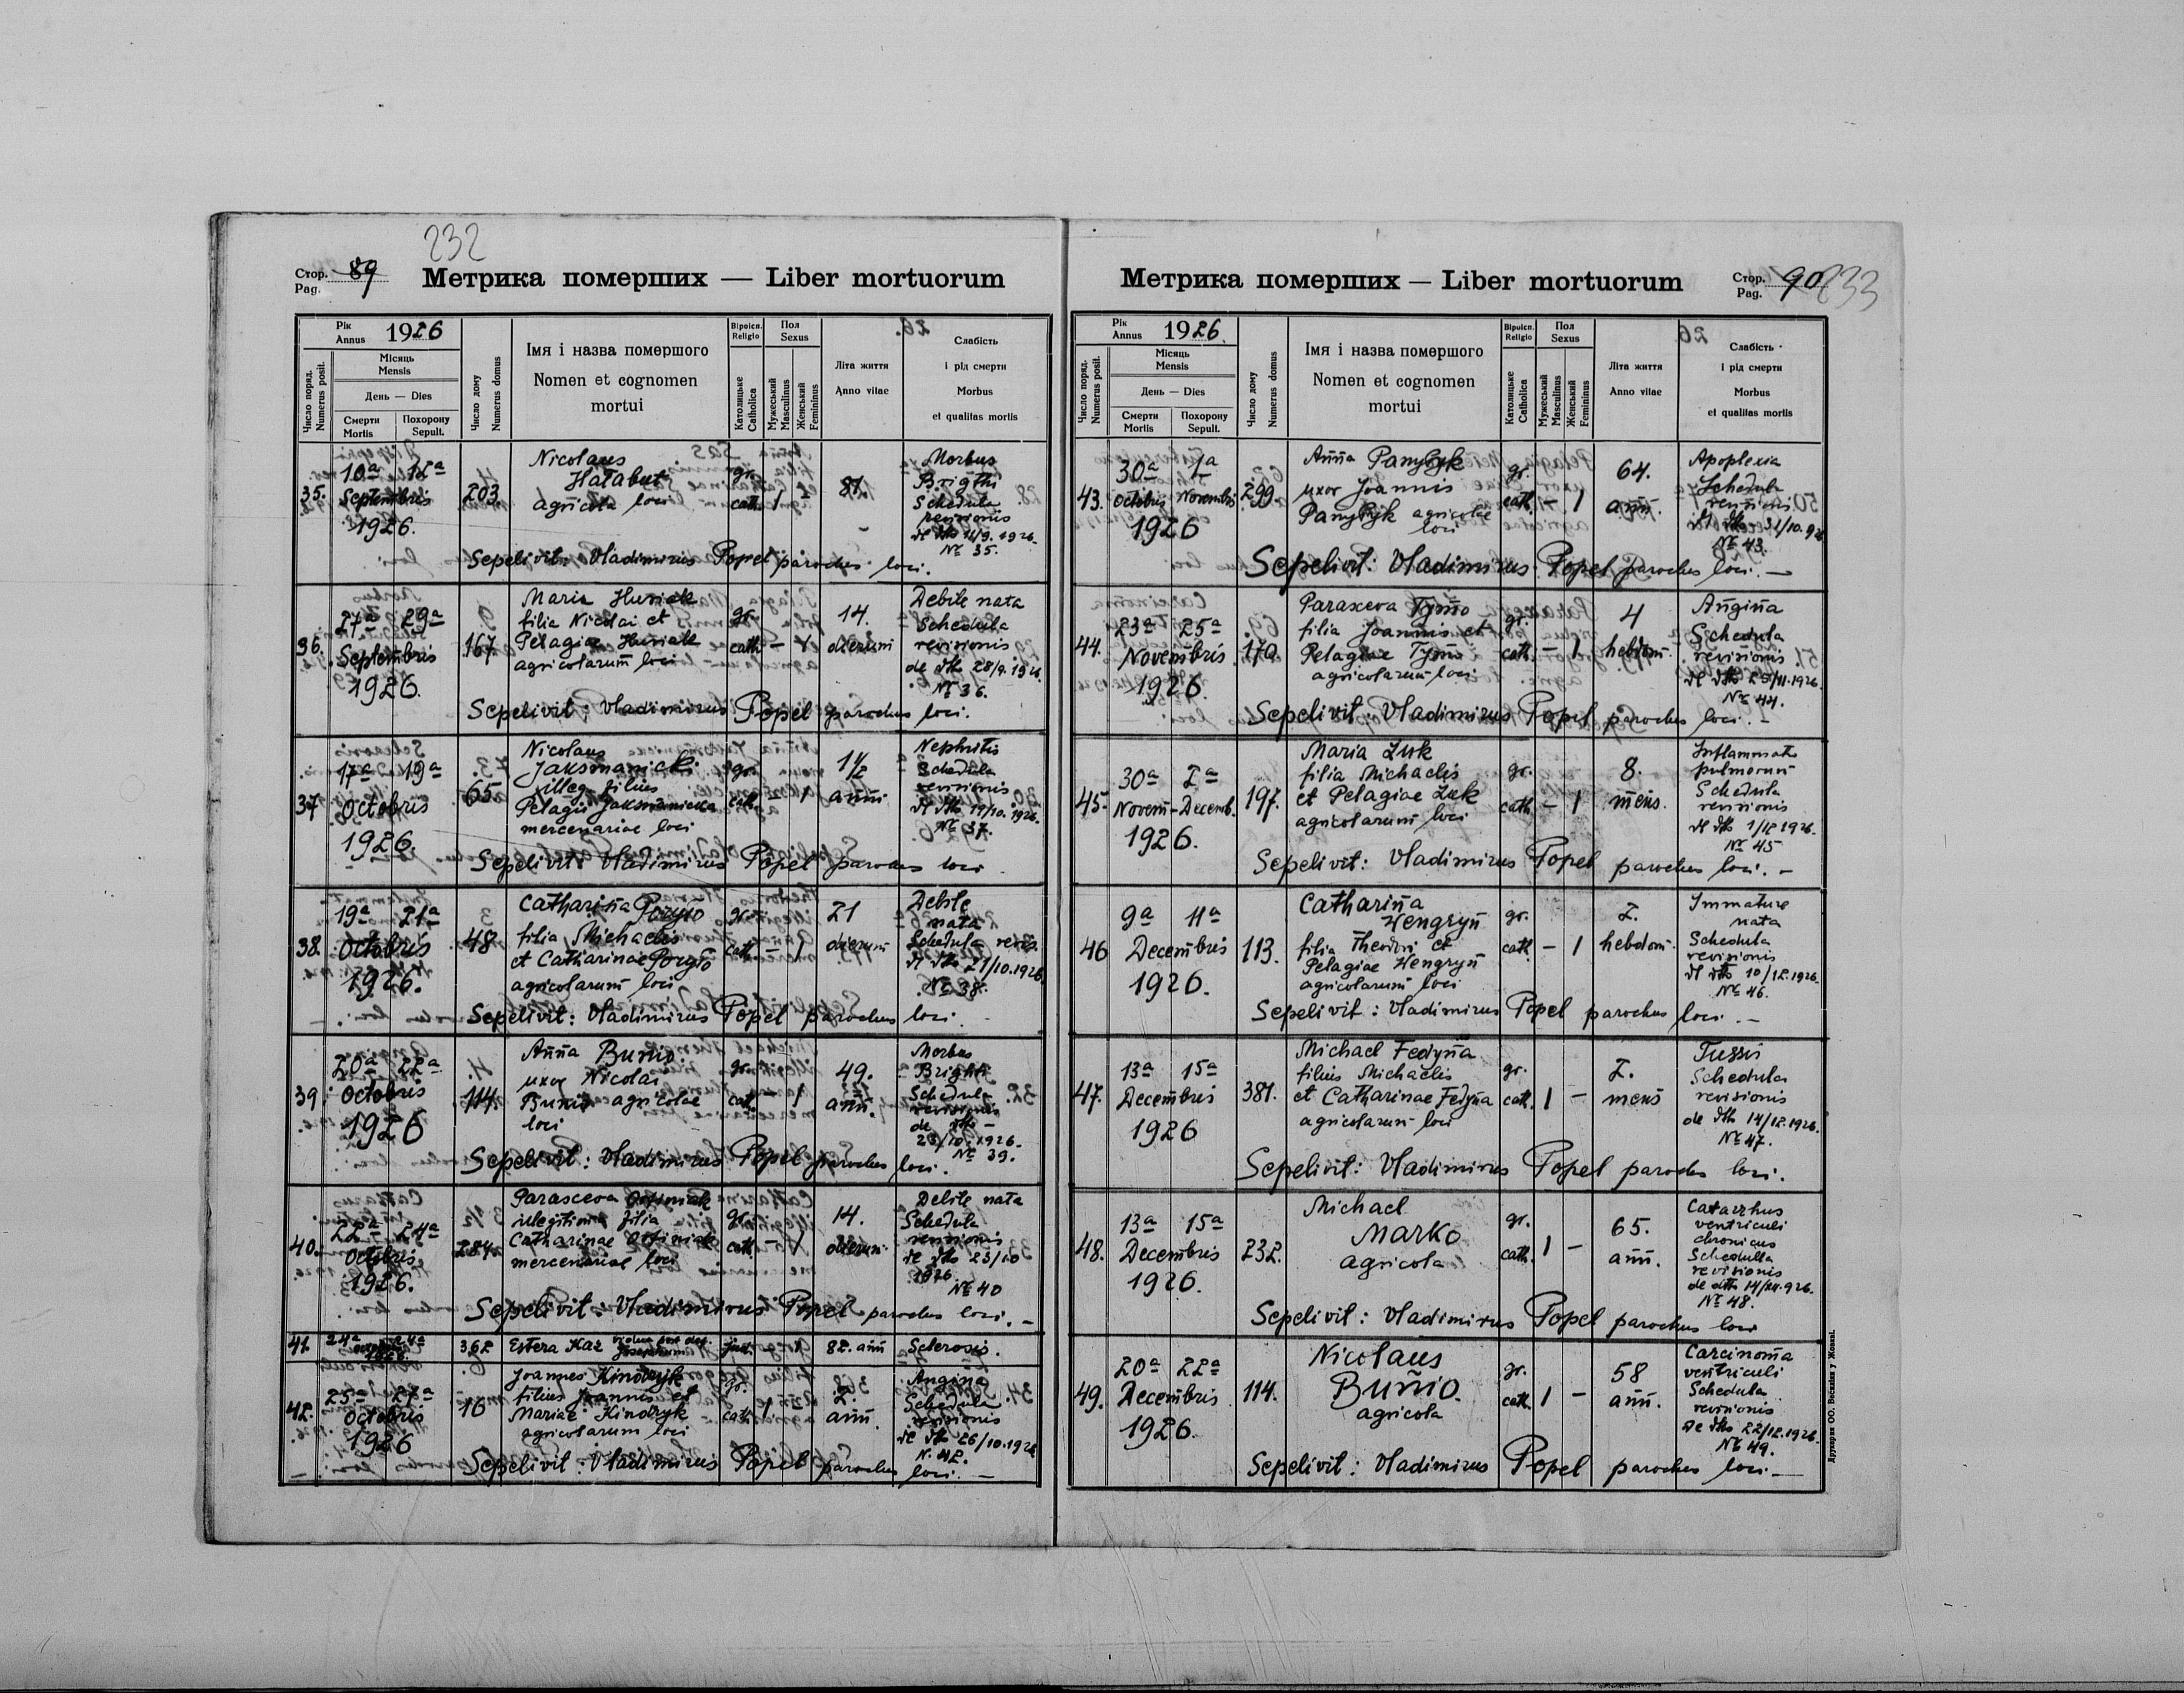 232
Стор. 89
Pag.
Метрика померших — Liber mortuorum
Рік
Annus
1926
Місяць
Mensis
День — Dies
Смерти
Mortis
Похорону
Sepult.
Число поряд.
Numerus posit.
Число дому
Numerus domus
Імя і назва помершого
Nomen et cognomen
mortui
Віроісп.
Religio
Католицьке
Catholica
Пол
Sexus
Мужеський
Masculinus
Женський
Femininus
Літа життя
Anno vitae
Слабість
і рід смерти
Morbus
et qualitas mortis
35.
10a 12a
Septembris
1926.
203
Nicolaus
Hałabut
agricola loci
gr.
cath. 1 -
81.
Morbus
Brigthi
Schedula
revisionis
de dtto 11/9. 1926.
№ 35.
Sepelivit: Vladimirus Popel parochus loci.
36.
27a 29a
Septembris
1926.
167
Maria Husiak
filia Nicolai et
Pelagiae Husiak
agricolarum loci
gr.
cath. - 1
14.
dierum
Debile nata
Schedula
revisionis
de dtto 28/9. 1926.
№ 36.
Sepelivit: Vladimirus Popel parochus loci.
37
17a 19a
Octobris
1926.
65
Nicolaus
Jaksmanicki
illeg. filius
Pelagii Jaksmanicka
mercenariae loci
gr.
cath. - 1
1/2
anni
Nephritis
Schedula
revisionis
de dtto 19/10. 1926.
№ 37.
Sepelivit: Vladimirus Popel parochus loci
38.
19a 21a
Octobris
1926.
48
Catharina
filia Michaelis
et Catharinae
agricolarum loci
gr.
cath. - 1
21
dierum
Debile
nata
Schedula revis.
de dtto 21/10.1926.
№ 38.
Sepelivit: Vladimirus Popel parochus loci.
39.
20a 22a
Octobris
1926
114.
Anna Bunio
uxor Nicolai
Bunio agricolae
loci
gr.
cath. - 1
49.
ann.
Morbus
Brighti
Schedula
revisionis
de dtto -
23/10. 1926.
№ 39.
Sepelivit: Vladimirus Popel parochus loci.
40.
22a 24a
Octobris
1926.
284.
Parasceva
illegitima filia
Catharinae
mercenariae loci
gr.
cath. - 1
14.
dierum
Debile nata
Schedula
revisionis
de dtto 23/10
1926.
№ 40
Sepelivit: Vladimirus Popel parochus loci. -
41.
24a 24a
1926.
362
Estera Kaz vidua post def.
Josephum
jud. 1
82. ann
Sclerosis.
42.
25a 27a
Octobris
1926
16
Joannes Kindzyk
filius Joannis et
Mariae Kindzyk
agricolarum loci
gr.
cath. 1
2.
ann.
Angina
Schedula
revisionis
de dtto 26/10.1926
N. 42.
Sepelivit: Vladimirus Popel parochus loci. —
Метрика померших — Liber mortuorum
Стор. 90
Pag.
233
Рік
Annus
1926.
Місяць
Mensis
День — Dies
Смерти
Mortis
Похорону
Sepult.
Число поряд.
Numerus posit.
Число дому
Numerus domus
Імя і назва помершого
Nomen et cognomen
mortui
Віроісп.
Religio
Католицьке
Catholica
Пол
Sexus
Мужеський
Masculinus
Женський
Femininus
Літа життя
Anno vitae
Слабість
і рід смерти
Morbus
et qualitas mortis
43.
30a 1a
Octobris Novembris
1926
299
Anna
uxor Joannis
agricolae
loci
gr.
cath. - 1
64.
ann.
Apoplexia
Schedula
revisionis
de dtto 31/10.926
№ 43.
Sepelivit: Vladimirus Popel parochus loci. —
44.
23a 25a
Novembris
1926.
170
Parasceva Tymo
filia Joannis et
Pelagiae Tymo
agricolarum loci
gr.
cath. - 1
4
hebdom.
Angina
Schedula
revisionis
№ 44.
Sepelivit: Vladimirus Popel parochus loci. -
45.
30a 2a
Novem-Decemb.
1926.
197.
Maria Łuk
filia Michaelis
et Pelagiae Łuk
agricolarum loci
gr.
cath - 1
8.
mens.
Inflammatio
pulmonum
Schedula
revisionis
de dtto 1/12 1926.
№ 45
Sepelivit: Vladimirus Popel parochus loci. -
46
9a 11a
Decembris
1926.
113.
Catharina
Hengryn
filia Theodori et
Pelagiae Hengryn
agricolarum loci
gr.
cath. - 1
2.
hebdom.
Immature
nata
Schedula
revisionis
de dtto 10/12.1926.
№ 46.
Sepelivit: Vladimirus Popel parochus loci. -
47.
13a 15a
Decembris
1926
381.
Michael Fedyna
filius Michaelis
et Catharinae Fedyna
agricolarum loci
gr.
cath. 1 -
2.
mens
Tussis
Schedula
revisionis
de dtto 14/12.1926.
№ 47.
Sepelivit: Vladimirus Popel parochus loci.
48.
13a 15a
Decembris
1926.
232.
Michael
Marko
agricola
gr.
cath. 1 -
65.
ann.
Catarrhus
ventriculi
chronicus
Schedulla
revisionis
de dtto 14/12.926.
№ 48.
Sepelivit: Vladimirus Popel parochus loci
49.
20a 22a
Decembris
1926.
114.
Nicolaus
Bunio.
agricola
gr.
cath. 1 -
58
ann.
Carcinoma
ventriculi
Schedula
revisionis
de dtto 22/12.1926.
№ 49.
Sepelivit: Vladimirus Popel parochus loci —
Друкарня ОО. Василіян у Жовкві.